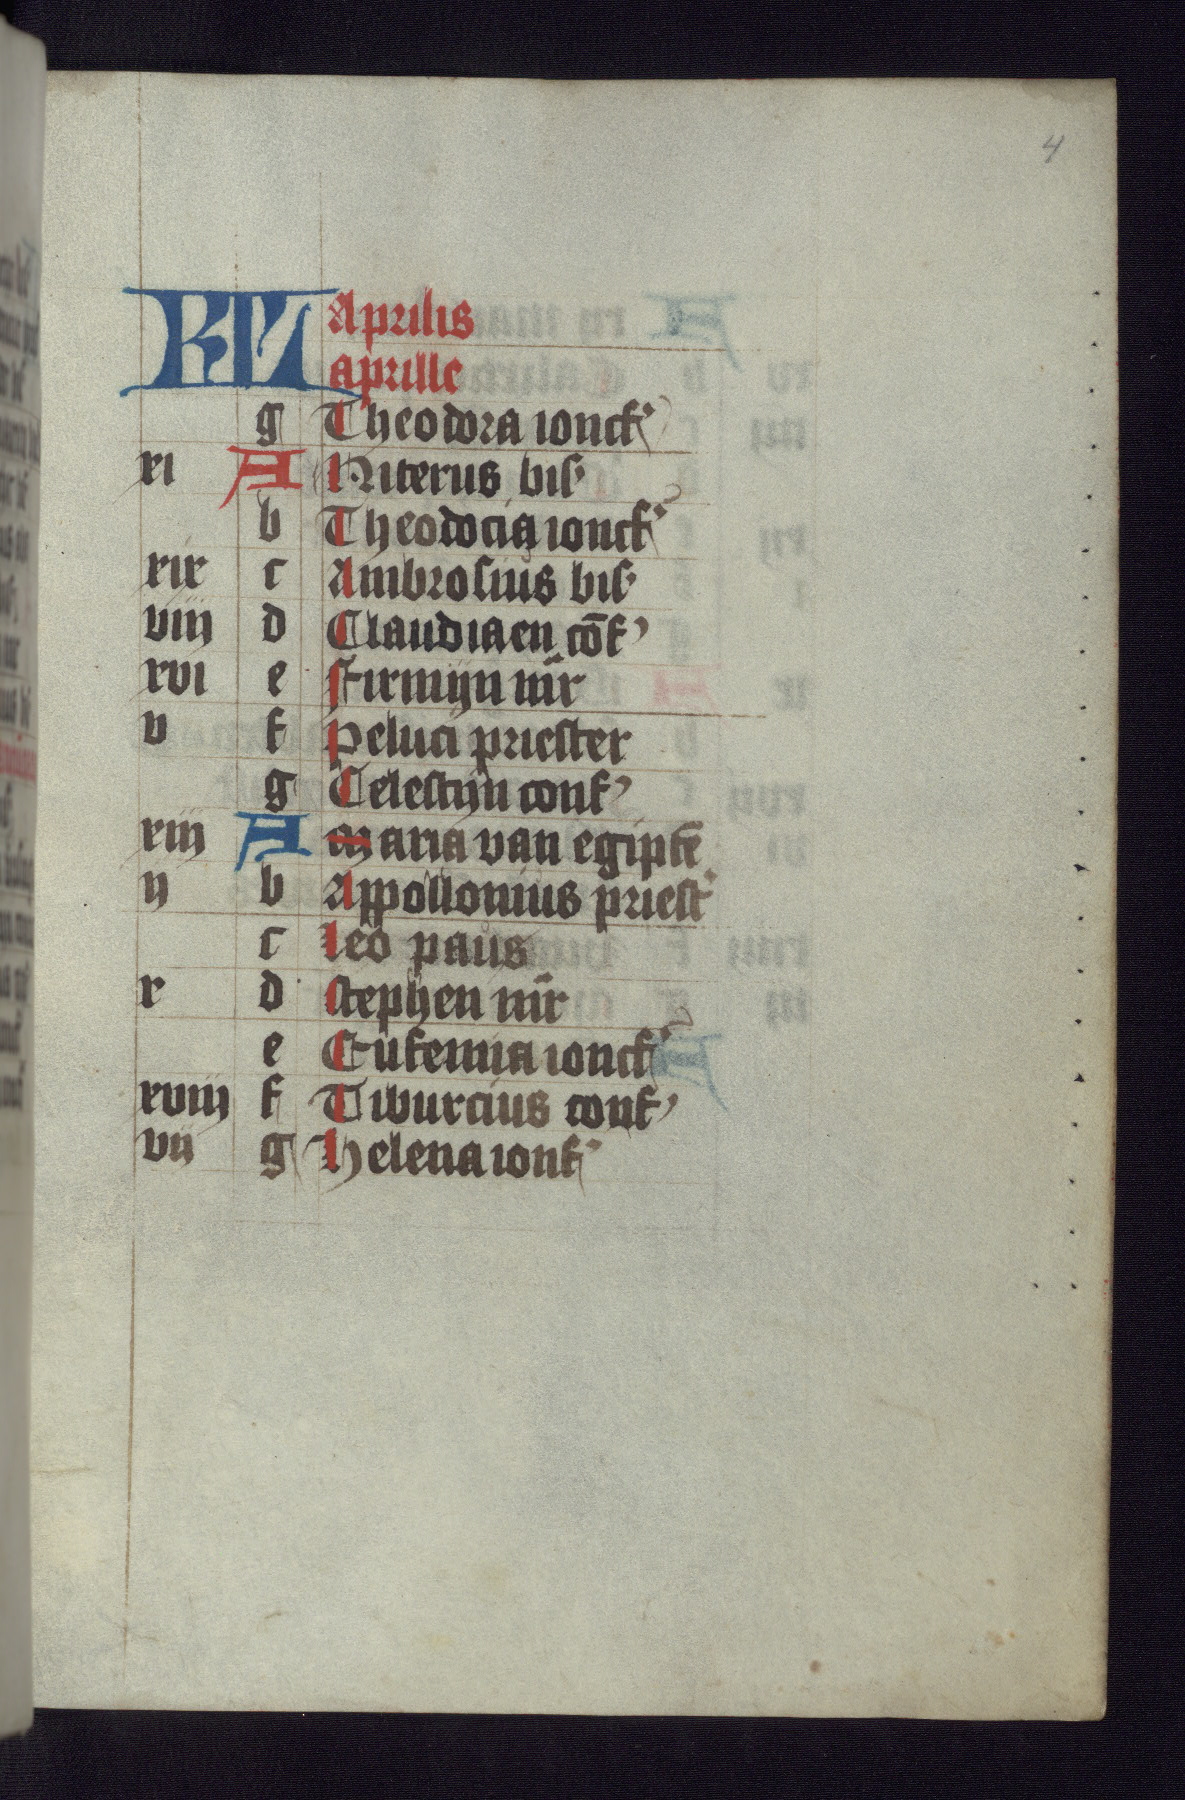 4
KL Aprilis
aprille
g Theodora ionckf
xi A Niterus bis
b Theodocia ionckf
xix c Ambrosius bis
viij d Claudiaen cōf
xvi e Firmijn mr̄
v f Peluci priester
g Celestijn conf
xiij A Maria van egiptē
ij b Appollonius priest
c leo paus
x d Stephen mr̄
e Eufemia ionckf
xviij f Tiburcius conf
vij g Helena ionf